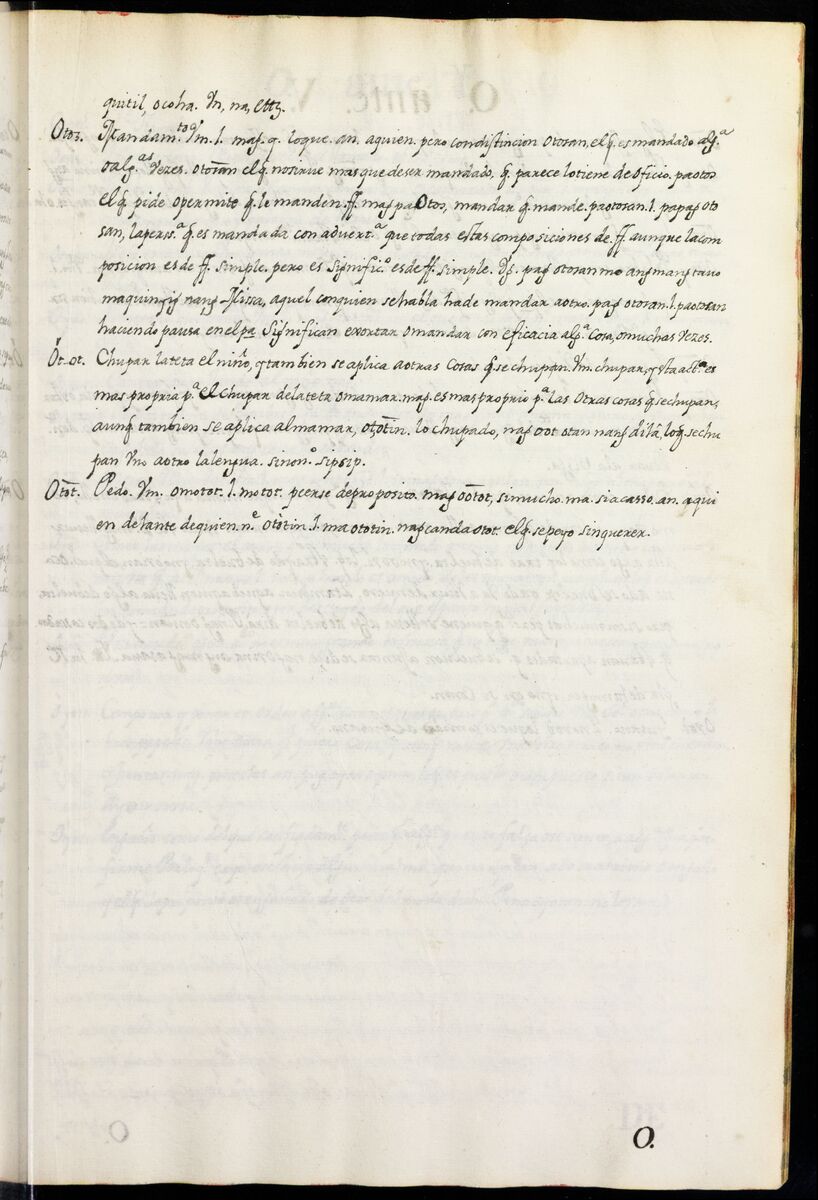 quitil, ocoha. Vn, na, ettz.
Otos. Mandam.to Vm. l. mag. q. loque. an. aquien. pero condistincion otosan, el q̃ es mandado alg.ª
oalg.as Vezes. otosan el q̃ nosirue mas que deser mandado, q̃ parece lo tiene de oficio. paotos
el q̃ pide o permite q̃ le manden. ff. mag pa Otos, mandar q̃ mande. paotosan. l. papag oto
san, la perss.ª q̃ es mandada con advert.ª que todas estas composiciones de ff. aunque lacom
posicion es de ff. simple. pero es signific.o es de ff. simple. Vg. pag otosan mo ang mang tauo
maquingig nang Missa, aquel conquien se habla ha de mandar aotro. pag otosan. l. paotosan
haciendo pausa en el pa significan exortar o mandar con eficacia alg.ª cosa, o muchas Vezes.
Ót-ot. Chupar la teta el niño, y tambien se aplica aotras cosas q̃ se chupan. Vm. chupar, y sta act.ª es
mas propria p.ª el chupar dela teta o mamar. mag. es mas proprio p.ª las otras cosas q̃ se chupan,
aunq̃ tambien se aplica al mamar, ototin. lo chupado, nag oot otan nang dila, loq̃ se chu
pan Vno aotro la lengua. sinon.o sipsip.
Otot. Pedo. Vm. omotot. l. motot. peerse de proposito. mag ootot, si mucho. ma. si acasso. an. aqui
en delante de quien. n.e ototin. l. ma ototin. nagcanda otot. el q̃ se peyo sin querer.
O.